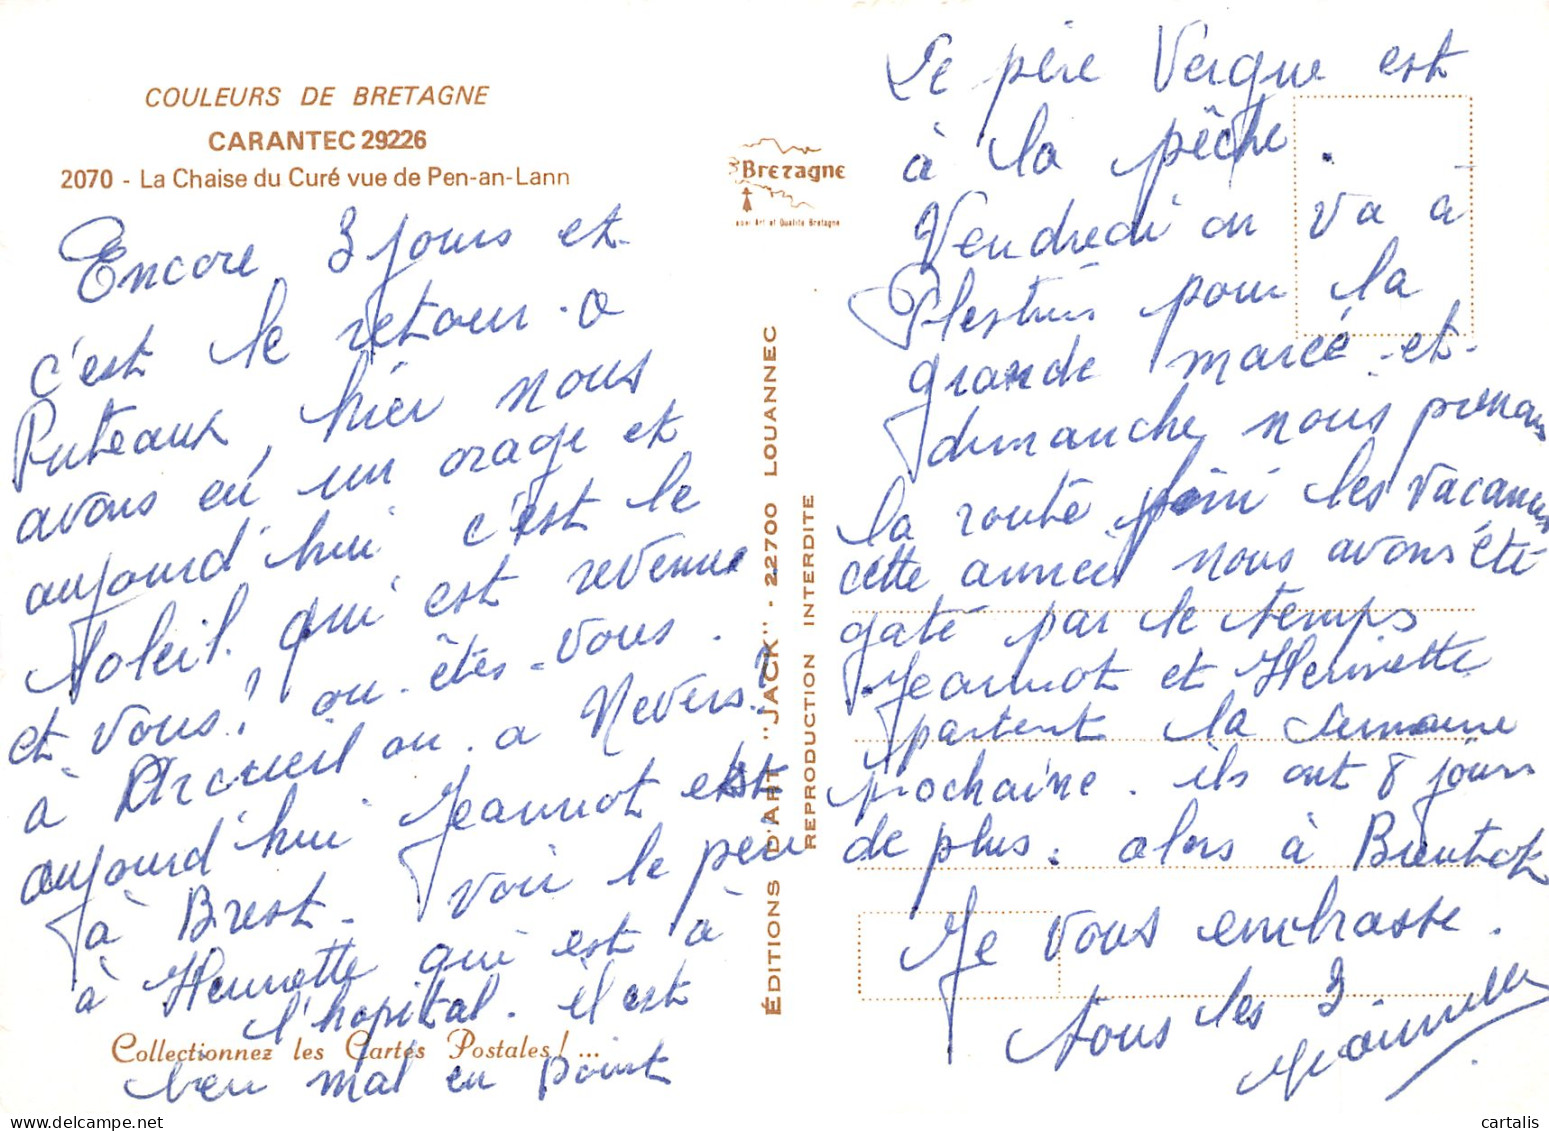 COULEURS DE BRETAGNE
CARANTEC 29226
2070 - La Chaise du Curé vue de Pen-an-Lann
Encore 3 jours et
c'est le retour. a
Puteaux, hier nous
avons eu un orage et
aujourd'hui c'est le
Soleil. qui est revenue
et vous? ou êtes-vous.
à Arcueil ou a Nevers?
aujourd'hui Jeannot est
à Brest. voir le père
à Henriette qui est à
l'hopital. il est
Collectionnez les Cartes Postales! ...
bien mal en point
Bretagne
Art et Qualité Bretagne
ÉDITIONS D'ART "JACK" - 22700 LOUANNEC
REPRODUCTION INTERDITE
Le père Vergne est
à la pêche.
Vendredi on va à
Plestin pour la
grande marée et
dimanche nous prenons
la route fini les vacances
cette année nous avons été
gaté par le temps
Jeannot et Henriette
partent la semaine
prochaine. ils ont 8 jours
de plus. alors à
Je vous embrasse.
tous les 3.